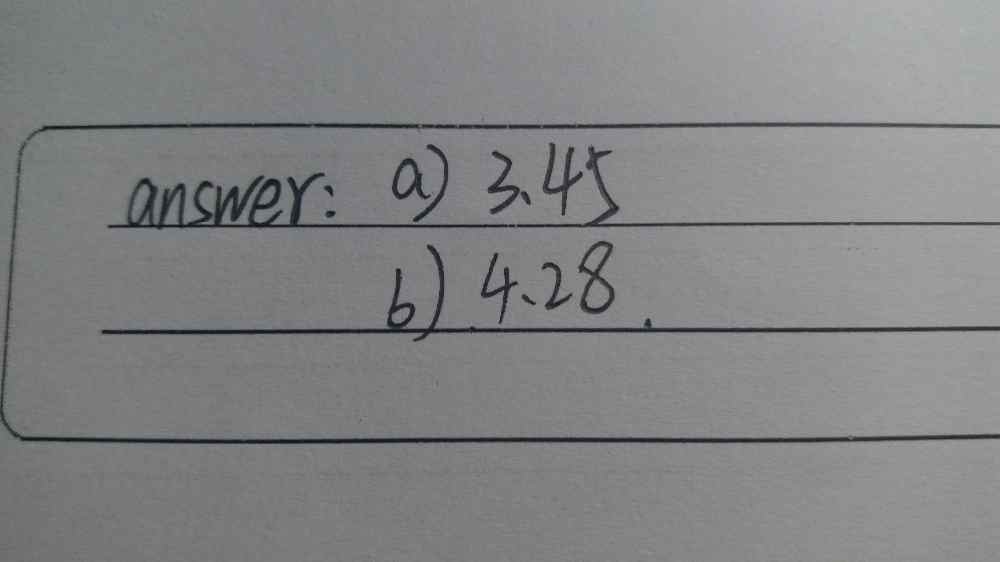 answer: a) 3.45
b) 4.28.